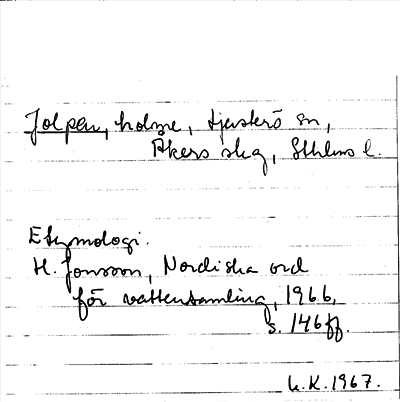 Jolpen, holme, Ljusterö sn,
Åkers skg, Sthlms l.
Etymologi.
H. Jonsson, Nordiska ord
för vattensamling, 1966,
s. 146ff.
K.1967.